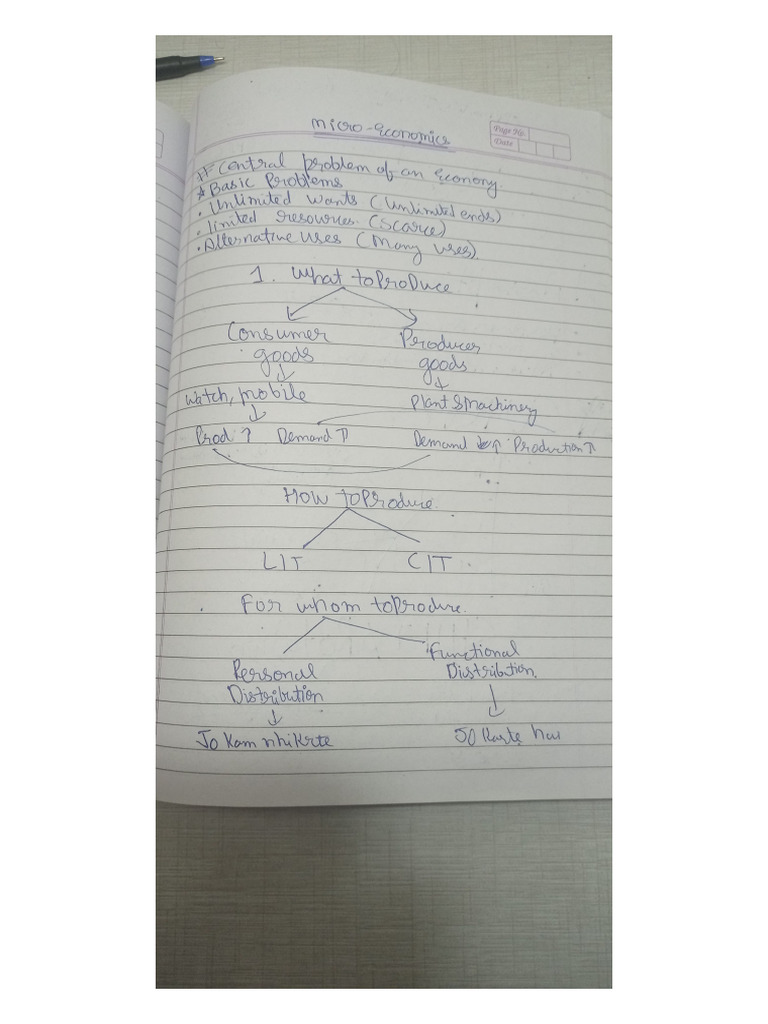 Micro-Economics
Page No.
Date
# Central problem of an Economy.
* Basic Problems
• Unlimited wants (Unlimited ends)
• limited resources. (Scarce)
• Alternative uses (Many uses).
1. What to ProDuce
Consumer goods
Producer goods
Watch, mobile
Plant & Machinery
Prod ↑ Demand ↑
Demand ↑ Production ↑
How to Produce.
LIT CIT
For whom to Produre.
Personal Distribution
Functional Distribution.
Jo Kam nhi Krte
JO Karte hai